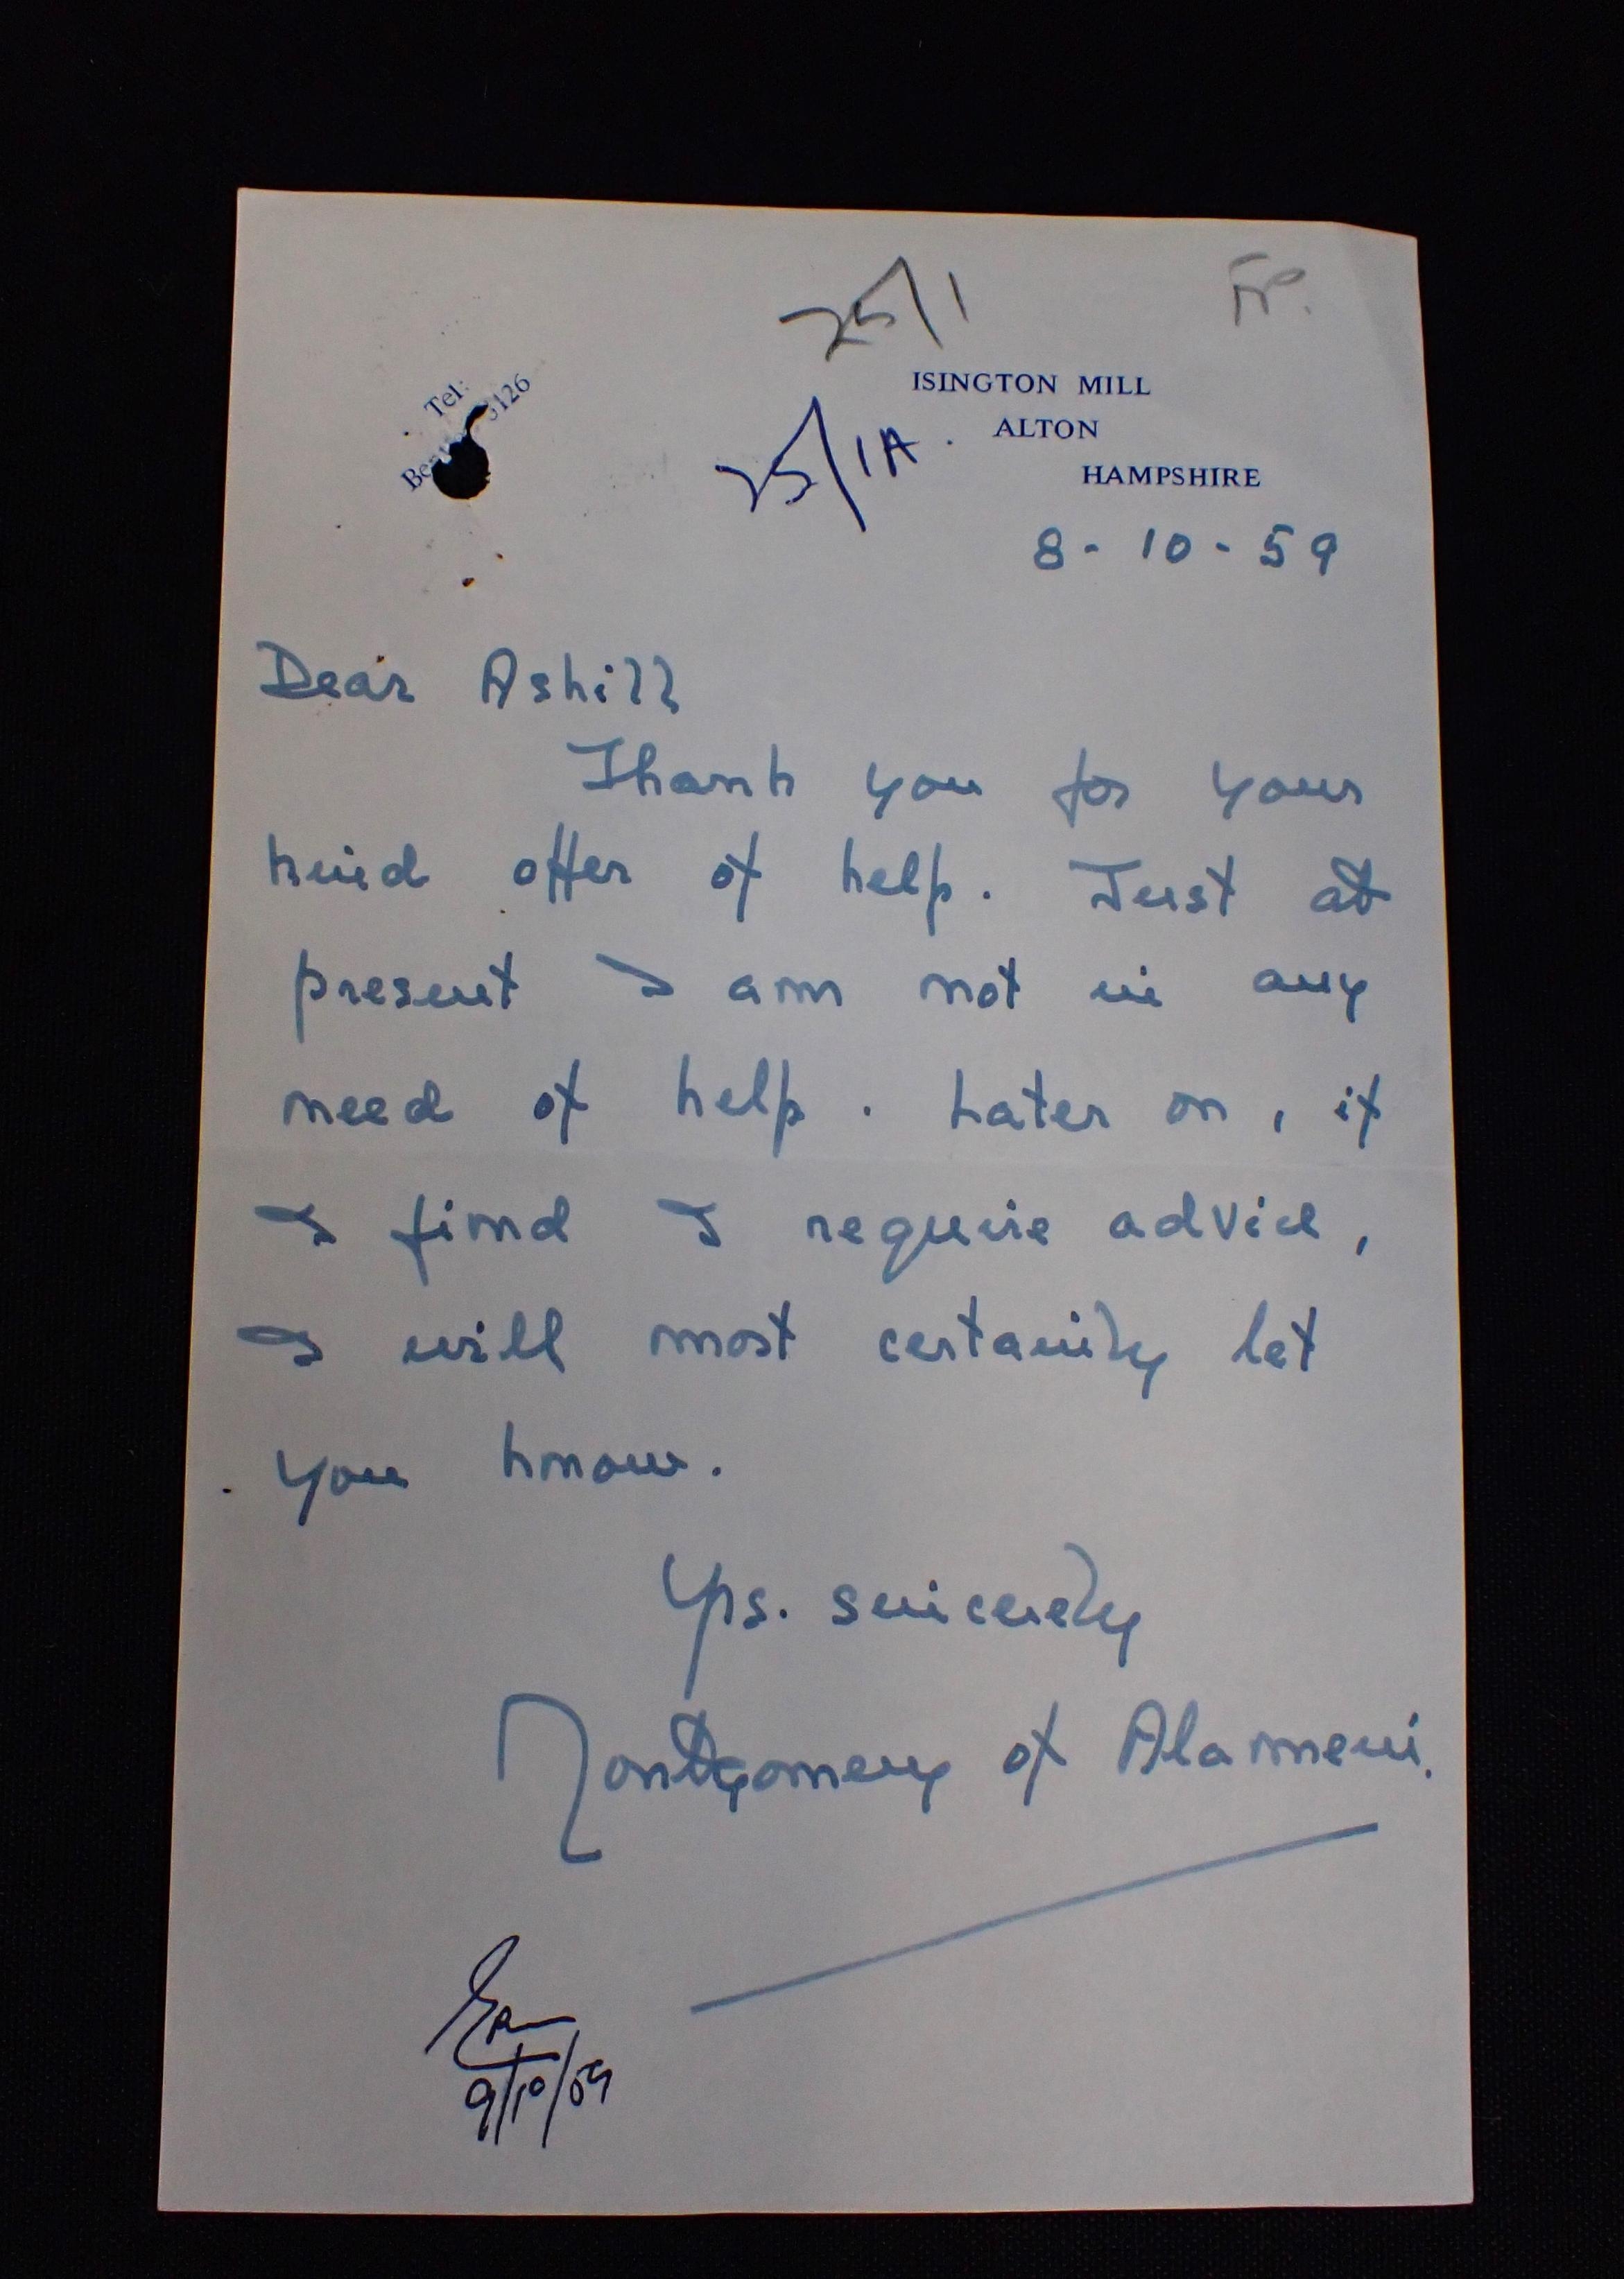 25/1
FP.
Tel:
3126
ISINGTON MILL
ALTON
HAMPSHIRE
25/1A.
8-10-59
Dear Ashill
Thank you for your
kind offer of help. Just at
present I am not in any
need of help. Later on, if
I find I require advice,
I will most certainly let
you know.
Yrs. sincerely
Montgomery of Alamein.
9/10/59